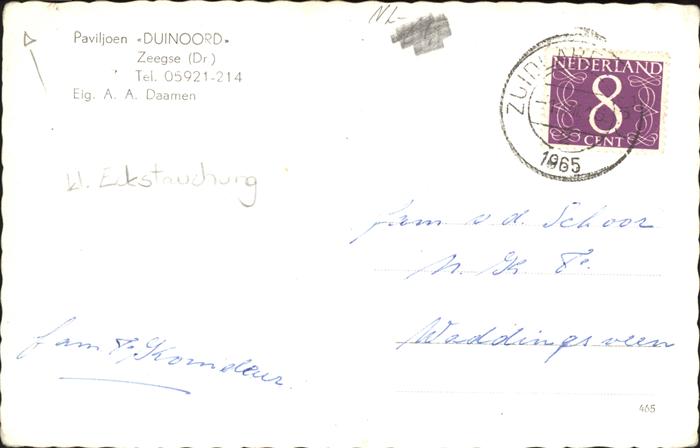 Paviljoen «DUINOORD»
Zeegse (Dr.)
Tel. 05921-214
Eig. A. A. Daamen
NL-
NEDERLAND
8
CENT
ZUIDLAREN
1965
kl. Eckstauchung
fam v. d. Schoor
N. K. Pe.
Waddingsveen
fam P. Komdeur.
465